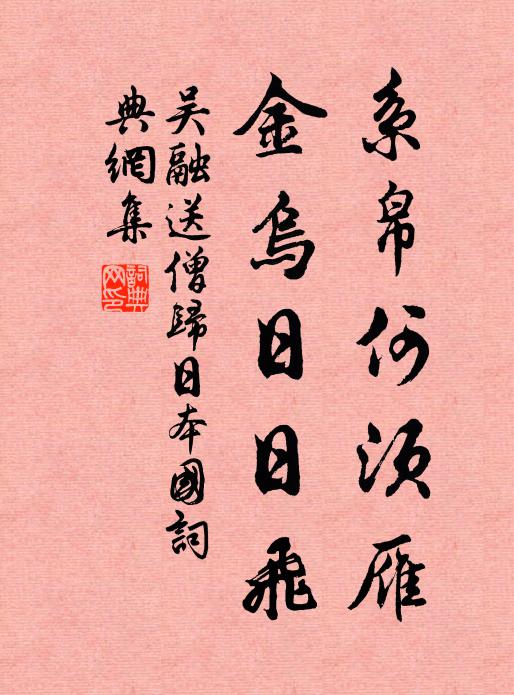 系帛何須雁
金烏日日飛
吳融送僧歸日本國詞
典網集
詞典網印